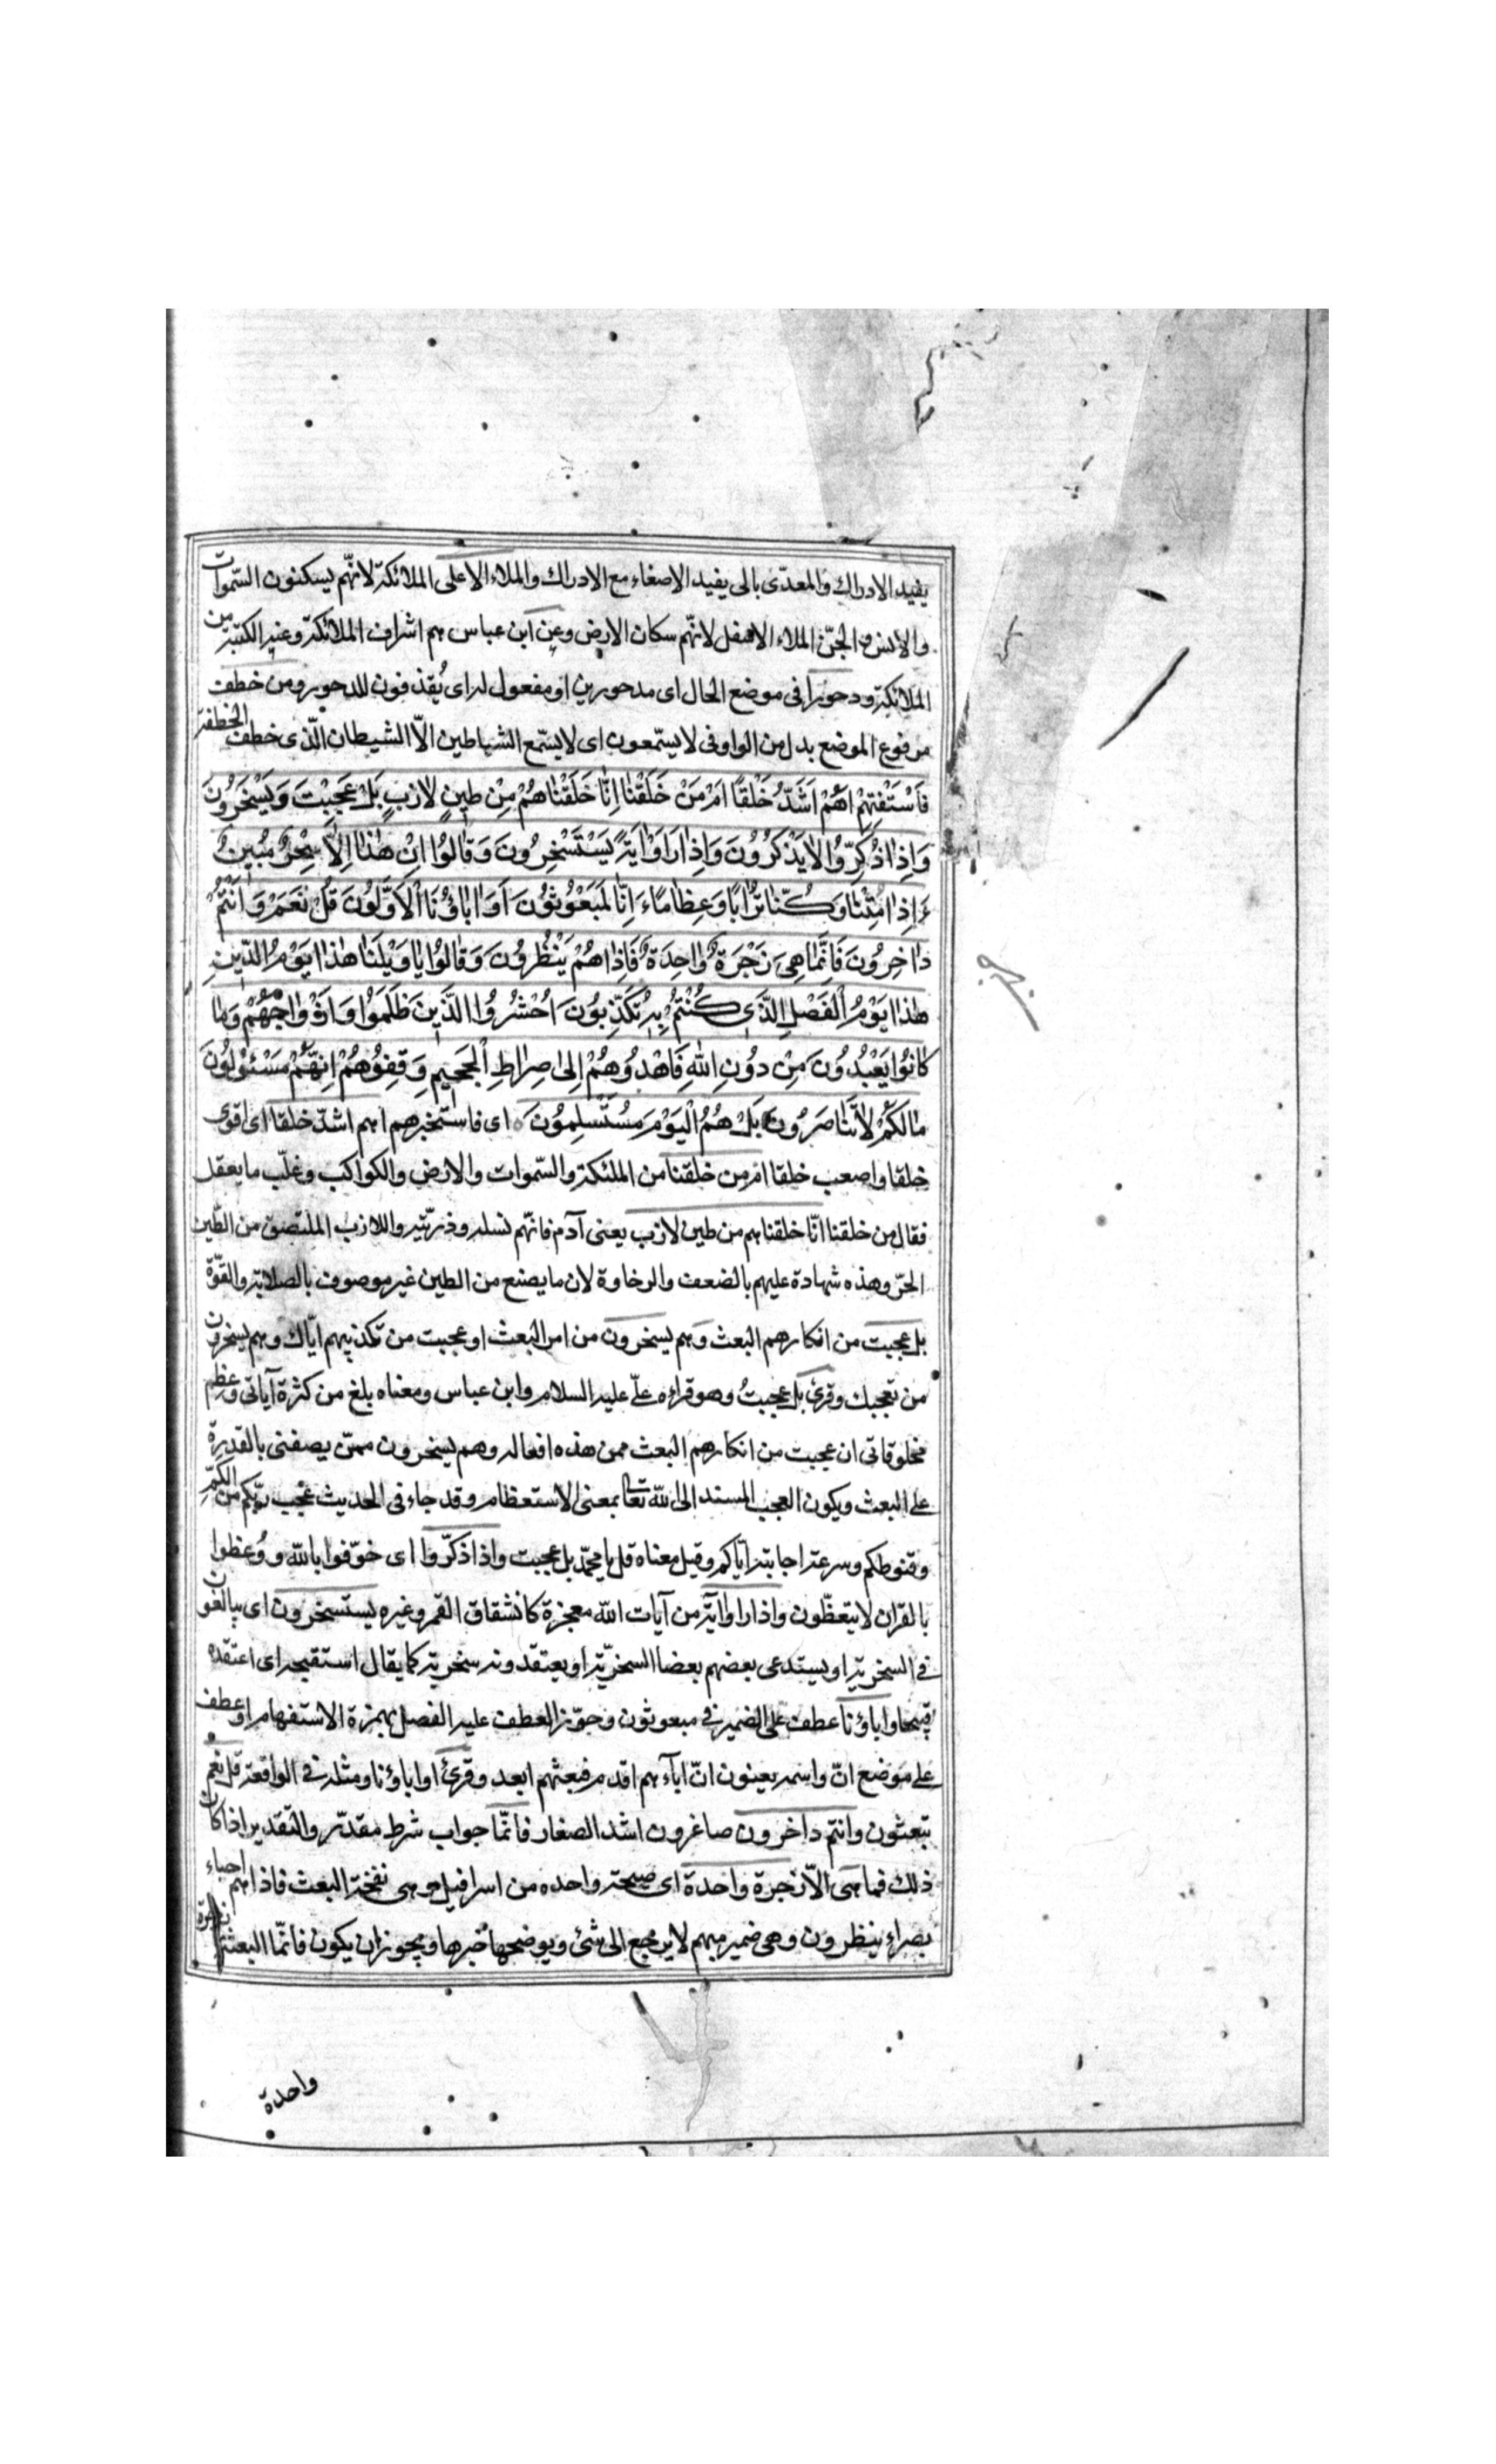 يفيد الادراك والمعدّى بالى يفيد الاصغاء مع الادراك والملاء الاعلى الملائكة لانّهم يسكنون السّموات
والانس و الجنّ الملاء الاسفل لانّهم سكان الارض وعن ابن عباس هم اشراف الملائكة وعنه الكتبة من
الملائكة ودحورا فى موضع الحال اى مدحورين او مفعول له اى يُقذفون للدحور ومن خطف
مرفوع الموضع بدل من الواو فى لا يسّمعون اى لا يسّمع الشياطين الاّ الشيطان الّذى خطف الخطفة
فَاَسْتَفْتِهِمْ اَهُمْ اَشَدُّ خَلْقًا اَمْ مَنْ خَلَقْنٰا اِنّٰا خَلَقْنٰاهُمْ مِنْ طٖينٍ لاٰزِبٍ بَلْ عَجِبْتَ وَيَسْخَرُونَ
وَاِذٰا ذُكِّرُوا لاٰ يَذْكُرُونَ وَاِذٰا رَاَوْا اٰيَةً يَسْتَسْخِرُونَ وَقٰالُوا اِنْ هٰذٰا اِلاّٰ سِحْرٌ مُبٖينٌ
ءَاِذٰا مِتْنٰا وَكُنّٰا تُرٰابًا وَعِظٰامًا ءَاِنّٰا لَمَبْعُوثُونَ اَوَ اٰبٰاؤُنَا اْلاَوَّلُونَ قُلْ نَعَمْ وَ اَنْتُمْ
دٰاخِرُونَ فَاِنَّمٰا هِىَ زَجْرَةٌ وٰاحِدَةٌ فَاِذٰا هُمْ يَنْظُرُونَ وَقٰالُوا يٰا وَيْلَنٰا هٰذٰا يَوْمُ الدّٖينِ
هٰذٰا يَوْمُ اْلفَصْلِ الَّذٖى كُنْتُمْ بِهٖ تُكَذِّبُونَ اُحْشُرُوا الَّذٖينَ ظَلَمُوا وَاَزْوٰاجَهُمْ وَمٰا
كٰانُوا يَعْبُدُونَ مِنْ دُونِ اللهِ فَاهْدُوهُمْ اِلىٰ صِرٰاطِ اْلجَحٖيمِ وَقِفُوهُمْ اِنَّهُمْ مَسْئُولُونَ
مٰالَكُمْ لاٰ تَنٰاصَرُونَ بَلْ هُمُ الْيَوْمَ مُسْتَسْلِمُونَ ه اى فاستخبرهم اهم اشدّ خلقا اى اقوى
خلقا واصعب خلقا ام من خلقنا من الملئكة والسّموات والارض والكواكب وغلّب ما يعقل
فقال من خلقنا انّا خلقناهم من طين لازب يعنى آدم فانّهم نسله وذرّيّته واللازب الملتصق من الطّين
الحرّ وهذه شهادة عليهم بالضعف والرخاوة لان ما يصنع من الطين غير موصوف بالصلابة والقوّة
بل عجبت من انكارهم البعث وهم يسخرون من امر البعث او عجبت من تكذيبهم ايّاك وهم يسخرون
من تعجبك وقرئ بل عجبتُ وهو قراءه علّى عليه السلام وابن عباس ومعناه بلغ من كثرة آياتى وعظم
مخلوقاتى ان عجبت من انكارهم البعث ممن هذه افعاله وهم يسخرون ممّن يصفنى بالقدرة
على البعث ويكون العجب المسند الى اللّه تعا بمعنى الاستعظام وقد جاء فى الحديث عجب ربّكم من الّكم
وقنوطكم وسرعة اجابته ايّاكم وقيل معناه قل يا محمّد بل عجبت واذا ذكّروا اى خوّفوا باللّه ووُعظوا
بالقران لا يتعظّون واذا راوا آية من آيات اللّه معجزة كانشقاق القمر وغيره يستسخرون اى يبالغون
فى السخريّة او يستدعى بعضهم بعضا السخريّة او يعتقدونه سخرية كما يقال استقبحه اى اعتقده
قبيحا واباؤنا عطف على الضمير فى مبعوثون وجوّز العطف عليه الفصل بهمزة الاستفهام او عطف
على موضع انّ واسمه يعنون انّ ابآءهم اقدم فبعثهم ابعد وقرئ او اباؤنا ومثله فى الواقعة قل نعم
تبعثون وانتم داخرون صاغرون اشد الصغار فانّما جواب شرط مقدّر والتقدير اذا كان
ذلك فما هى الاّ زجرة واحدة اى صيحة واحده من اسرافيل وهى نفخة البعث فاذا هم احياء
بصراء ينظرون وهى ضمير مبهم لا يرجع الى شئ ويوضحها خبرها ويجوز ان يكون فانّما البعثة زجرة
واحدة